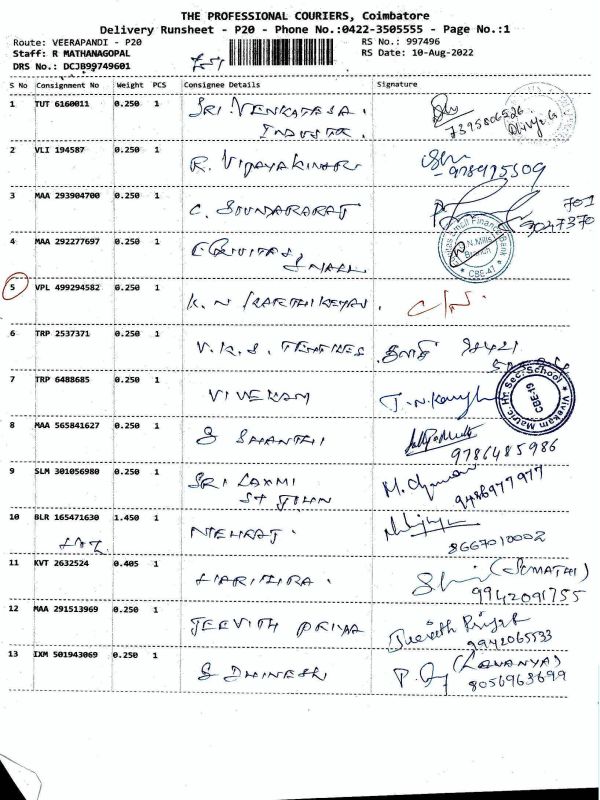 THE PROFESSIONAL COURIERS, Coimbatore
Delivery Runsheet - P20 - Phone No.:0422-3505555 - Page No.:1
Route: VEERAPANDI - P20 RS No.: 997496
Staff: R MATHANAGOPAL RS Date: 10-Aug-2022
DRS No.: DCJB99749601
S No Consignment No Weight PCS Consignee Details Signature
1 TUT 6160011 0.250 1 SRI. VENKATESA.
INDUSTR. 7395806526
2 VLI 194587 0.250 1 R. VIJAYAKUMAR
3 MAA 293904700 0.250 1 C. SOUNDARARAJ 701
9047370
4 MAA 292277697 0.250 1 EQUITAS
SMALL
N.Mills Branch
CBE-47
5 VPL 499294582 0.250 1 K. N KARTHIKEYAN. C/N.
6 TRP 2537371 0.250 1 V. K. S. TEXTILES
7 TRP 6488685 0.250 1 VIVEKAM
Vivekam Matric Hr. Sec. School
CBE-19
8 MAA 565841627 0.250 1 S SHANTHI
9786485986
9 SLM 301056980 0.250 1 SRI LAXMI
ST JOHN 9486977977
10 BLR 165471630 1.450 1 NEHRAJ.
8667010002
11 KVT 2632524 0.405 1 HARITHRA. (SUMATHI)
9942091755
12 MAA 291513969 0.250 1 JEEVITH PRIYA Jeevith Priya
9942065533
13 IXM 501943069 0.250 1 S DHINESH (LAVANYA)
8056963699